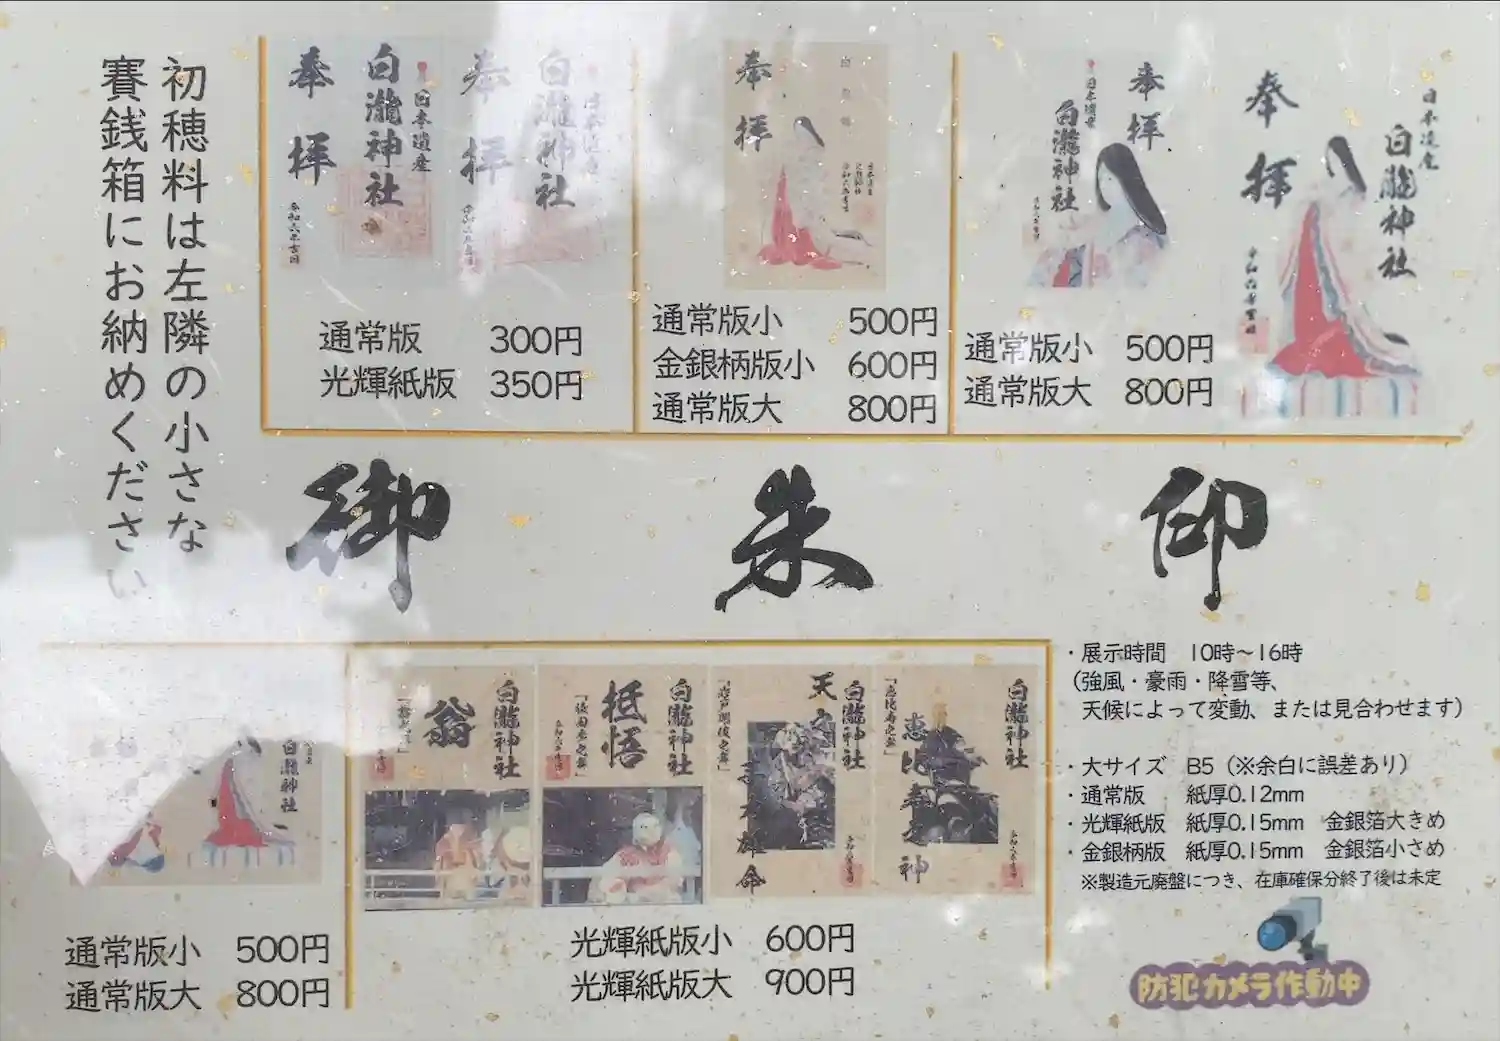 初穂料は左隣の小さな
賽銭箱にお納めください
奉拝
日本遺産
白瀧神社
令和六年吉日
奉拝
日本遺産
白瀧神社
通常版 300円
光輝紙版 350円
奉拝
通常版小 500円
金銀柄版小 600円
通常版大 800円
奉拝
日本遺産
白瀧神社
奉拝
日本遺産
白瀧神社
令和六年吉日
通常版小 500円
通常版大 800円
御朱印
白瀧神社
通常版小 500円
通常版大 800円
白瀧神社
翁
白瀧神社
抵悟
白瀧神社
天
白瀧神社
恵比寿之神
光輝紙版小 600円
光輝紙版大 900円
・展示時間 10時〜16時
(強風・豪雨・降雪等、
天候によって変動、または見合わせます)
・大サイズ B5(※余白に誤差あり)
・通常版 紙厚0.12mm
・光輝紙版 紙厚0.15mm 金銀箔大きめ
・金銀柄版 紙厚0.15mm 金銀箔小さめ
※製造元廃盤につき、在庫確保分終了後は未定
防犯カメラ作動中